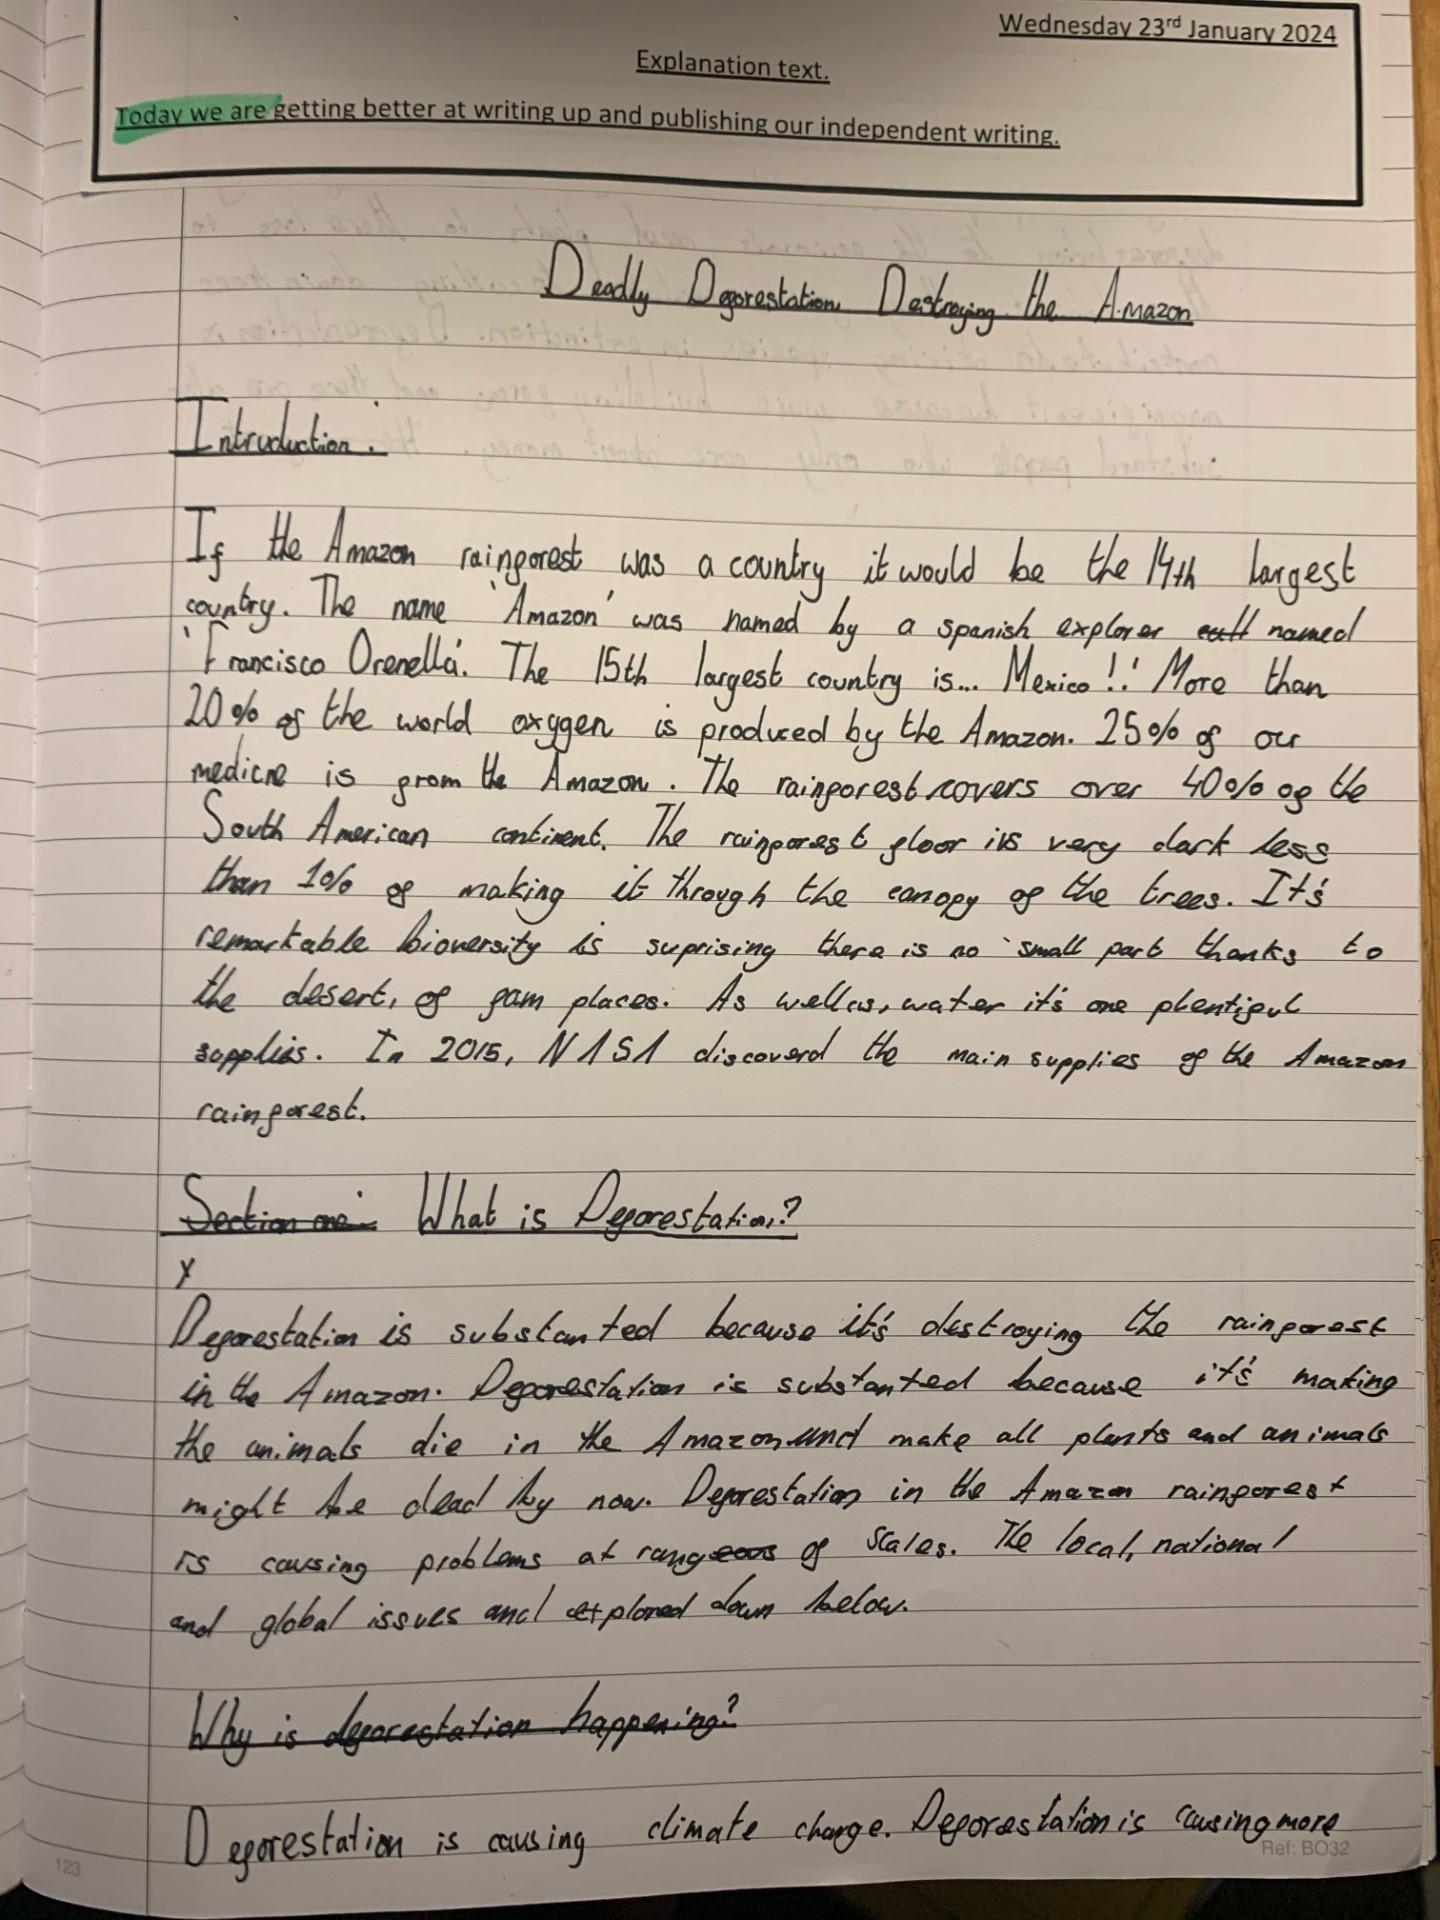 Wednesday 23rd January 2024
Explanation text.
Today we are getting better at writing up and publishing our independent writing.
Deadly Deforestation Destroying the Amazon
Introduction:
If the Amazon rainforest was a country it would be the 14th largest
country. The name 'Amazon' was named by a spanish explorer named
'Francisco Orenella'. The 15th largest country is... Mexico!! More than
20% of the world oxygen is produced by the Amazon. 25% of our
medicne is from the Amazon. The rainforest covers over 40% of the
South American continent. The rainforest floor is very dark less
than 1% of making it through the canopy of the trees. It's
remarkable bioversity is suprising there is no small part thanks to
the desert, of fam places. As well as, water it's one plentiful
supplies. In 2015, NASA discoverd the main supplies of the Amazon
rainforest.
Section one: What is Deforestation?
x
Deforestation is substanted because it's destroying the rainforest
in the Amazon. Deforestation is substanted because it's making
the animals die in the Amazon and make all plants and animals
might be dead by now. Deforestation in the Amazon rainforest
is causing problems at rang of scales. The local, national
and global issues and explored down below.
Why is deforestation happening?
Deforestation is causing climate change. Deforestation is causing more
123
Ref: BO32